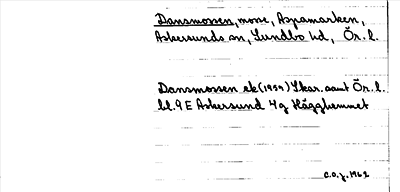 Dansmossen, mosse, Aspamarken,
Askersunds sn, Sundbo hd, Ör. l.
Dansmossen ek (1959) Skar. samt Ör. l.
bl. 9 E Askersund 4g Hägghemmet
C.O.J. 1962